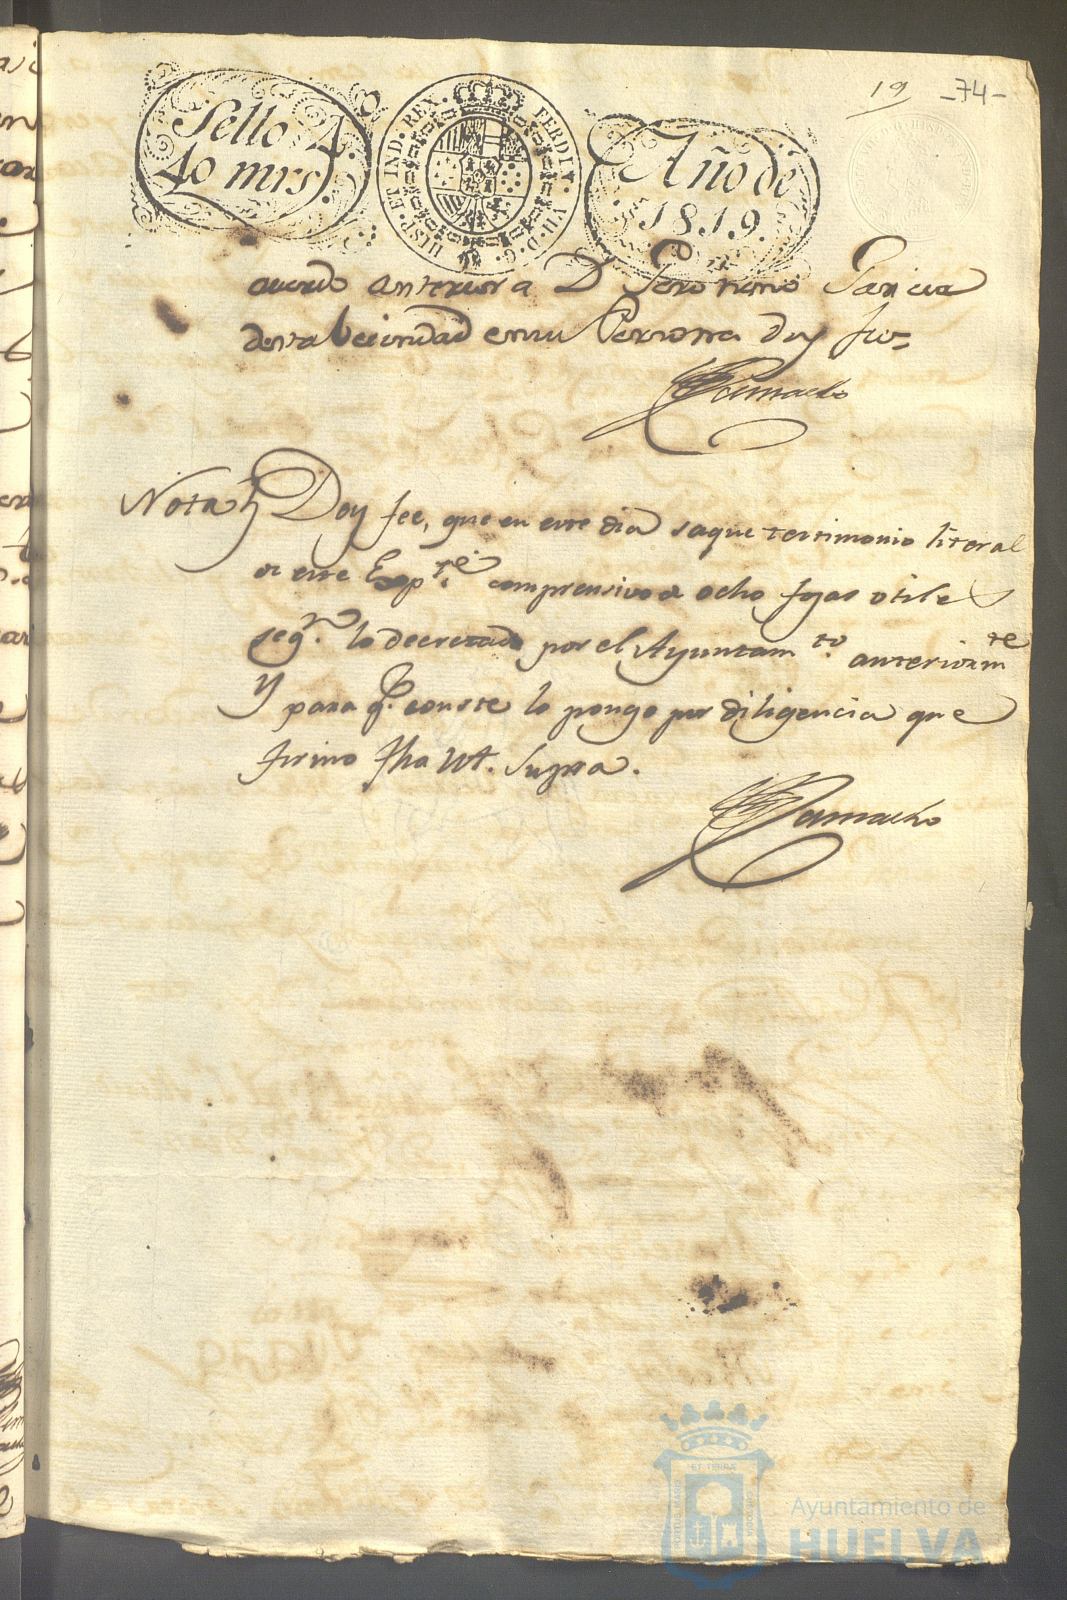 19 -74-
Sello 4.º
40 mrs.
HISP. ET IND. REX. FERDIN. VII. D. G.
Año de
1819.
acuerdo anterior a Dn Geronimo Garcia
de esta becindad en su Persona doy fee=
Camacho
Nota Doy fee, que en este dia saque testimonio literal
de este Expte. comprensivo de ocho fojas utiles
segn. lo decretado por el Ayuntamto. anteriormte
Y para q.e conste lo pongo por diligencia que
firmo fha Ut. Supra.
Camacho
Ayuntamiento de
HUELVA